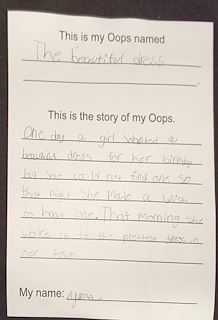 This is my Oops named
The beautiful dress
This is the story of my Oops.
One day a girl wanted a
beautiful dress for her birthday
but she could not find one so
that night she made a wish
to have one. That morning she
woke up to the prettiest dress in
her town.
My name: